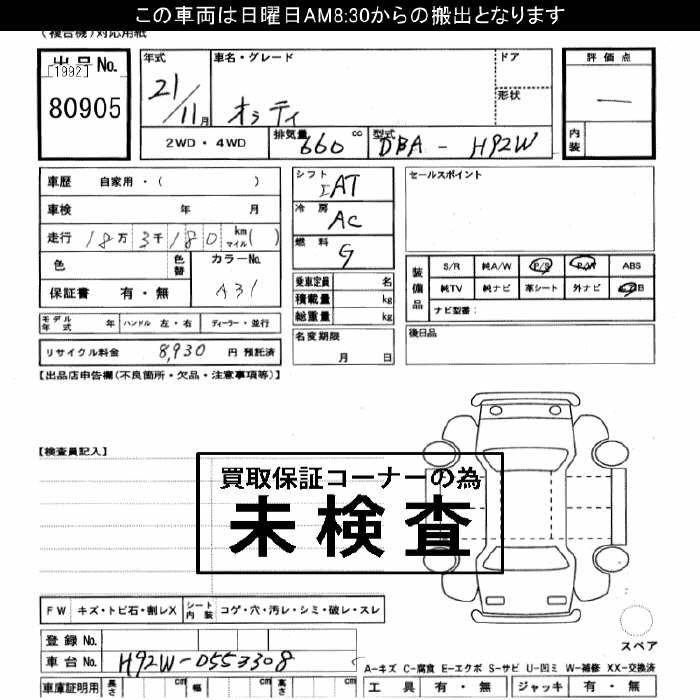 この車両は日曜日AM8:30からの搬出となります
(複合機)対応用紙
出品No.
[1992]
80905
年式
21/11月
車名・グレード
オッティ
ドア
形状
評価点
―
内装
2WD・4WD
排気量 660 cc
型式 DBA - H92W
車歴 自家用・( )
車検 年 月
走行 18万3千180 km マイル( )
色
色替
カラーNo.
A31
保証書 有・無
シフト
IAT
冷房
AC
燃料
G
乗車定員 名
積載量 kg
総重量 kg
セールスポイント
装備品
S/R 純A/W P/S P/W ABS
純TV 純ナビ 革シート 外ナビ
ナビ型番:
モデル年式 年 ハンドル 左・右 ディーラー・並行
名変期限
月 日
後日品
リサイクル料金 8,930 円 預託済
【出品店申告欄(不良箇所・欠品・注意事項等)】
【検査員記入】
買取保証コーナーの為
未検査
FW キズ・トビ石・割レX シート内装 コゲ・穴・汚レ・シミ・破レ・スレ
スペア
登録No.
車台No. H92W-0553308
A-キズ C-腐食 E-エクボ S-サビ U-凹ミ W-補修 XX-交換済
車庫証明用 長さ cm 幅 cm 高さ cm
工具 有・無 ジャッキ 有・無